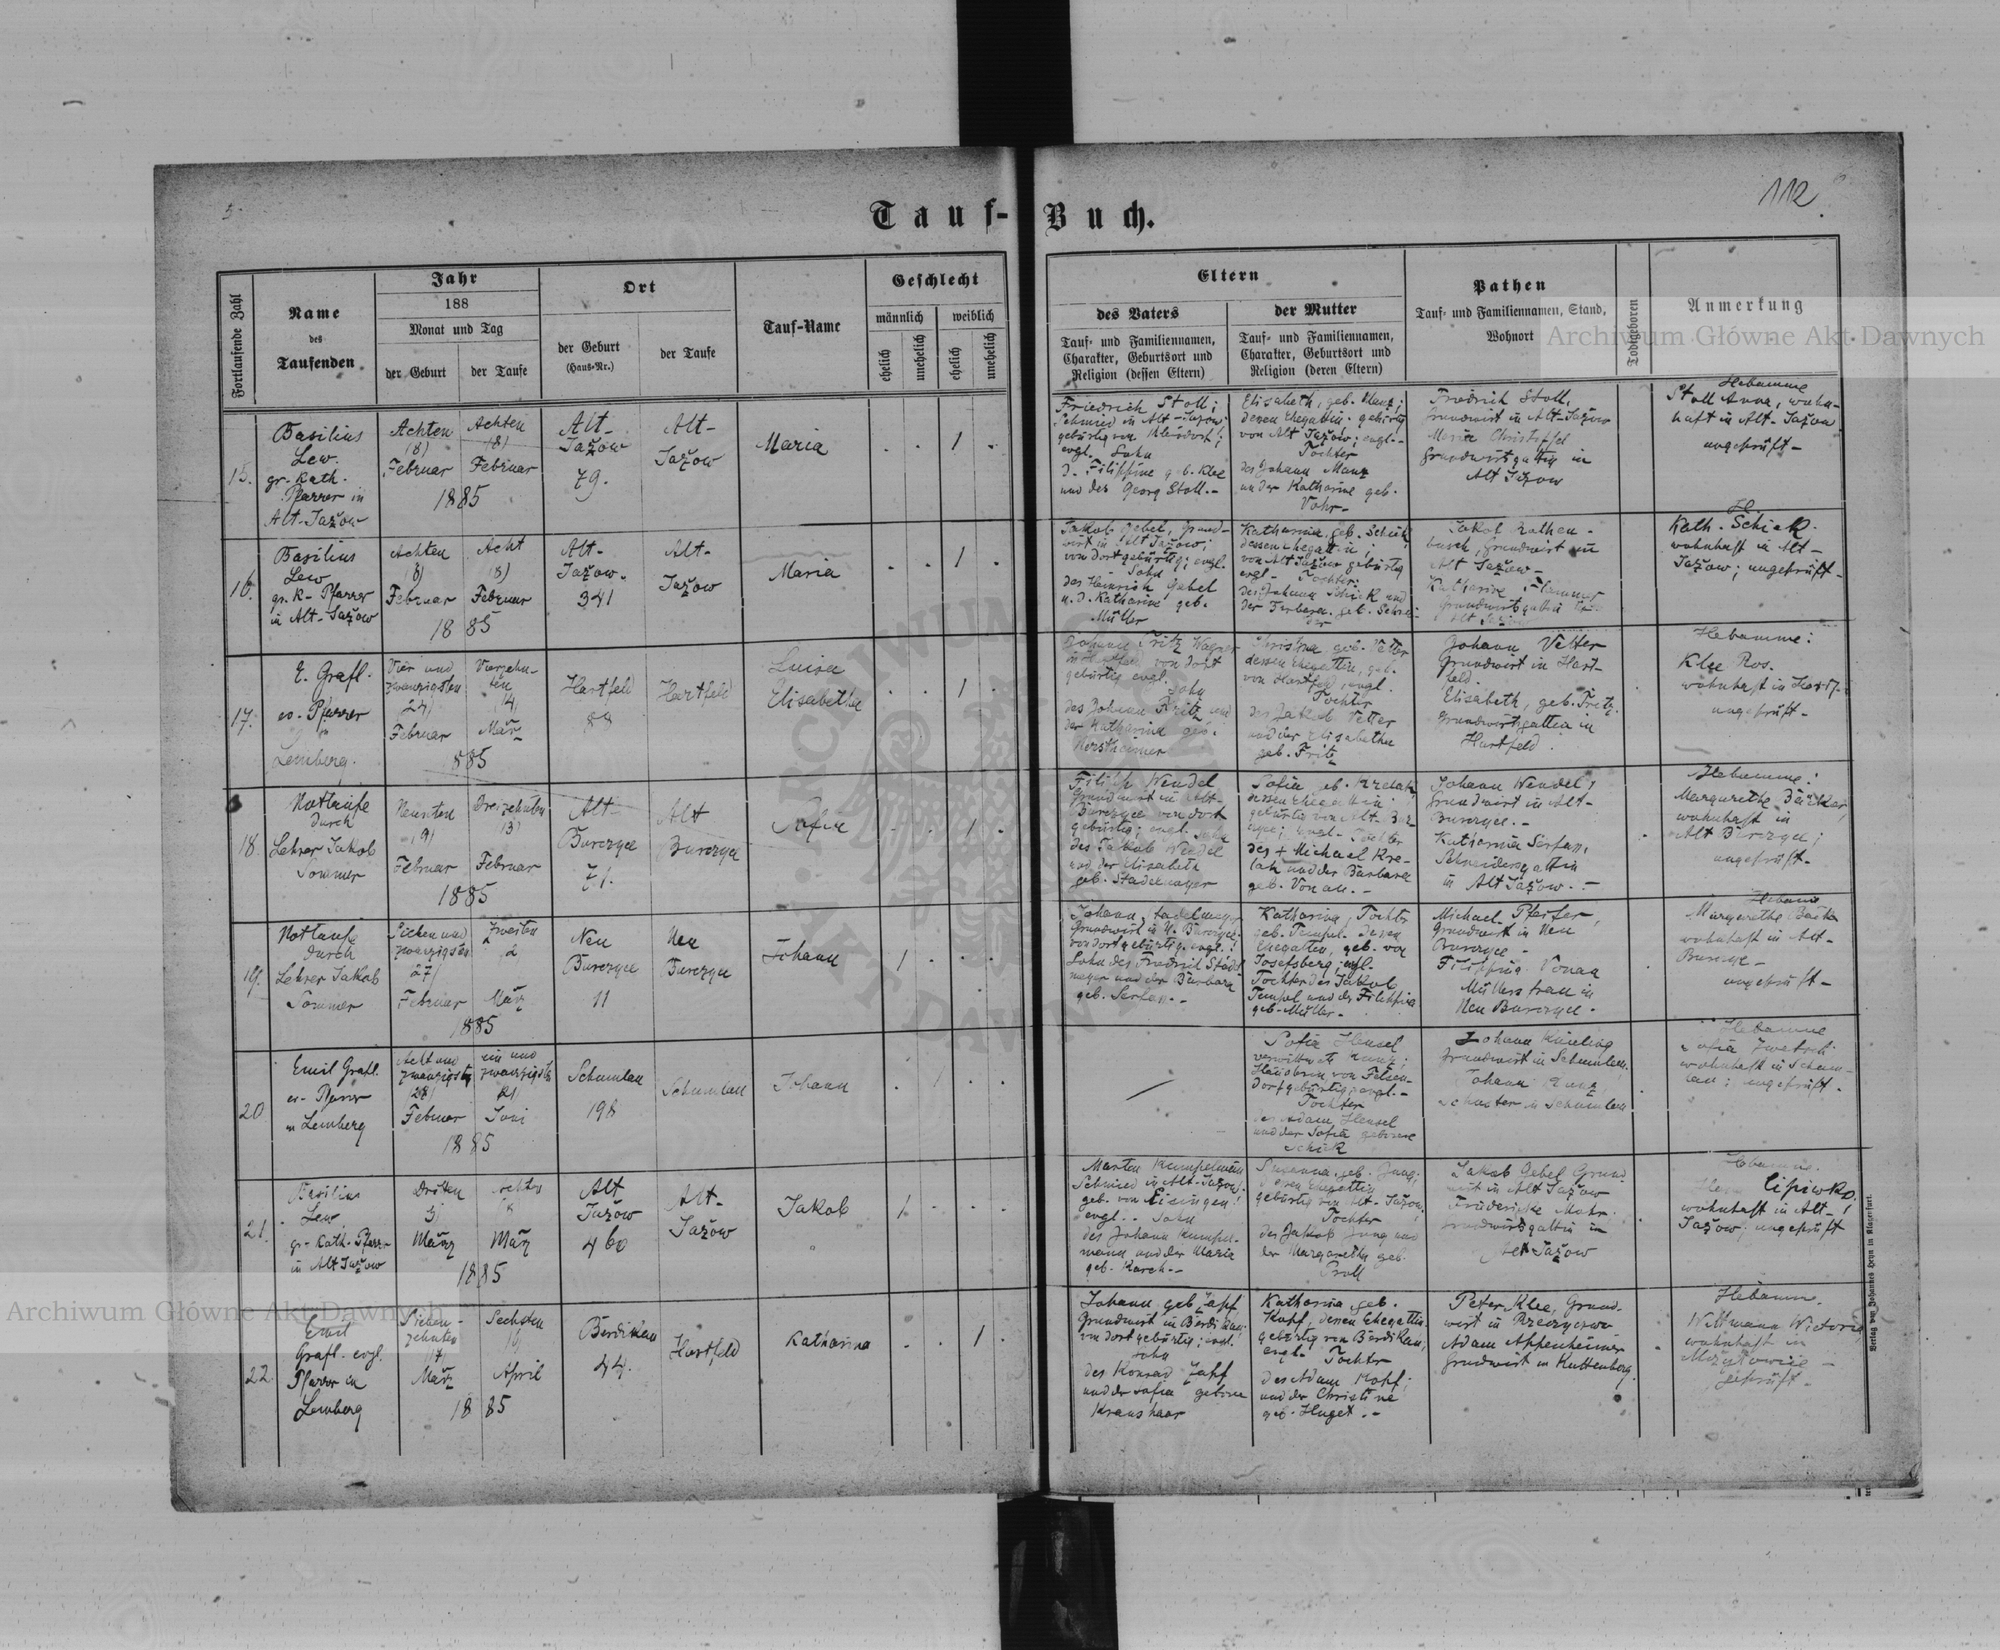 112
Tauf-Buch.
Fortlaufende Zahl
Name
des
Taufenden
Jahr
188
Monat und Tag
der Geburt
der Taufe
Ort
der Geburt
(Haus-Nr.)
der Taufe
Tauf-Name
Geschlecht
männlich
weiblich
ehelich
unehelich
ehelich
unehelich
Eltern
des Vaters
Tauf- und Familiennamen,
Charakter, Geburtsort und
Religion (dessen Eltern)
der Mutter
Tauf- und Familiennamen,
Charakter, Geburtsort und
Religion (deren Eltern)
Pathen
Tauf- und Familiennamen, Stand,
Wohnort
Todtgeboren
Anmerkung
15.
Basilius
Lew.
gr. Kath.
Pfarrer in
Alt-Jažow
Achten
(8)
Februar
Achten
(8)
Februar
1885
Alt-
Jažow
79.
Alt-
Jažow
Maria
1
Friedrich Stoll;
Schmied in Alt-Jažow;
evgl. Sohn
d. Filippine geb. Klee
und des Georg Stoll.-
Elisabeth, geb. Manz;
deren Ehegattin, gebürtig
von Alt Jažow; evgl.-
Tochter
des Johann Manz
und der Katharine geb.
Friedrich Stoll,
Grundwirt in Alt-Jažow
Maria Christoffel
Grundwirtsgattin in
Alt Jažow
Hebamme
Stoll Anna, wohn-
haft in Alt-Jažow
ungeprüft-
16.
Basilius
Lew
gr. K- Pfarrer
in Alt-Jažow
Achten
8)
Februar
Acht
(8)
Februar
1885
Alt-
Jažow.
341
Alt-
Jažow
Maria
1
Jakob Gebel, Grund-
wirt in Alt Jažow;
von dort gebürtig; evgl.
Sohn
des Heinrich Gebel
u. d. Katharine geb.
Müller
Katharina, geb. Schick
dessen Ehegattin;
von Alt Jažow gebürtig
evgl- Tochter:
des Johann Schick und
Jakob Rathen-
busch, Grundwirt in
Alt Jažow-
Katharine
Grundwirtsgattin
Kath. Schick.
wohnhaft in Alt-
Jažow; ungeprüft-
17.
E. Grafl.
ev. Pfarrer
in
Lemberg.
Vier und
zwanzigsten
24)
Februar
Vierzehn-
ten
14)
März
1885
Hartfeld
88
Hartfeld
Luisa
Elisabetha
1
Johann Fritz Wagner
in Hartfeld von dort
gebürtig evgl.
Sohn
des Johann Fritz und
der Katharina geb.
Christina geb. Vetter
dessen Ehegattin, geb.
von Hartfeld, evgl.
Tochter
des Jakob Vetter
und der Elisabetha
geb. Fritz
Johann Vetter
Grundwirt in Hart-
feld.
Elisabeth, geb. Fritz.
Grundwirtsgattin in
Hartfeld.
Hebamme:
Klee Ros.
ungeprüft-
18.
Nottaufe
durch
Lehrer Jakob
Sommer
Neunten
(9)
Februar
Dreizehnten
13)
Februar
1885
Alt-
Burczyce
71.
Alt
Burczyce
Sofie
1
Filipp Wendel
Grundwirt in Alt-
Burczyce von dort
gebürtig; evgl. Sohn
des Jakob Wendel
und der Elisabeth
geb. Stadelmayer
dessen Ehegattin
gebürtig von Alt. Bur-
czyce; evgl- Tochter
des + Michael Kre-
und der Barbara
geb. Vonau.-
Johann Wendel,
Grundwirt in Alt-
Burczyce.-
Katharina Serfas,
Schneidersgattin
in Alt Jažow.-
Hebamme:
Margarethe
wohnhaft in
Alt Burczyce;
ungeprüft-
19.
Nottaufe
durch
Lehrer Jakob
Sommer
Sieben und
zwanzigsten
27)
Februar
Zweiten
2
März
1885
Neu
Burczyce
11
Neu
Burczyce
Johann
1
Johann Stadelmayer
Grundwirt in N. Burczyce.
von dort gebürtig; evgl.;
Sohn des Friedrich Stadel-
mayer und der Barbara
geb. Serfas.-
Katharina, Tochter
geb. Tempel. dessen
Ehegattin, geb. von
Josefsberg; evgl.-
Tochter des Jakob
Tempel und der Filippina
geb. Müller.-
Michael Pfeifer,
Grundwirt in Neu
Burczyce-
Filippina Vonau
Müllersfrau in
Neu Burczyce.
Hebamme
Margarethe
wohnhaft in Alt-
ungeprüft-
20
Emil Grafl.
ev- Pfarrer
in Lemberg
Acht und
zwanzigsten
28)
Februar
ein und
zwanzigsten
21)
Juni
1885
Schumlau
198
Schumlau
Johann
1
Sofia Hensel
verwittwete Kunz;
von Felsen-
dorf gebürtig; evgl.-
Tochter
des Adam Hensel
und der Sofia geborene
Schick
Johann
Grundwirt in Schumlau.
Johann Kunz
Schuster in Schumlau
Hebamme
Sofia
wohnhaft in Schum-
lau; ungeprüft.
21.
Basilius
Lew
gr. Kath. Pfarrer
in Alt Jažow
Dritten
3)
März
März
1885
Alt
Jažow
460
Alt-
Jažow
Jakob
1
Martin Kumpelmann
Schmied in Alt-Jažow.
geb. von Eisingen;
evgl.- Sohn
des Johann Kumpel-
mann und der Maria
geb. Karch.-
Susanna, geb. Jung;
deren Ehegattin
gebürtig von Alt-Jažow,
Tochter
des Jakob Jung und
der Margaretha geb.
Proll
Jakob Gebel, Grund-
wirt in Alt Jažow
Friederike Mohr.
Grundwirtsgattin in
Alt Jažow
Hebamme.
Lipiwko
wohnhaft in Alt-
Jažow; ungeprüft
22.
Emil
Grafl. evgl.
Pfarrer in
Lemberg
Sieben-
zehnten
17)
März
Sechsten
6)
April
1885
Berdikau
44.
Hartfeld
Katharina
1
Johann geb. Zapf,
Grundwirt in Berdikau;
von dort gebürtig; evgl.
Sohn
des Konrad Zapf
und der Sofia geborne
Kraushaar
Katharina geb.
Kopf, dessen Ehegattin
gebürtig von Berdikau,
evgl. Tochter
des Adam Kopf;
und der Christine
geb. Huget.-
Peter Klee, Grund-
wirt in
Adam Appenheimer
Grundwirt in Kuttenberg.
Hebamme.
Wittmann Victoria
wohnhaft in
geprüft.
Verlag von Johannes Heyn in Klagenfurt.
Archiwum Główne Akt Dawnych
Archiwum Główne Akt Dawnych
ARCHIWUM GŁÓWNE AKT DAWNYCH